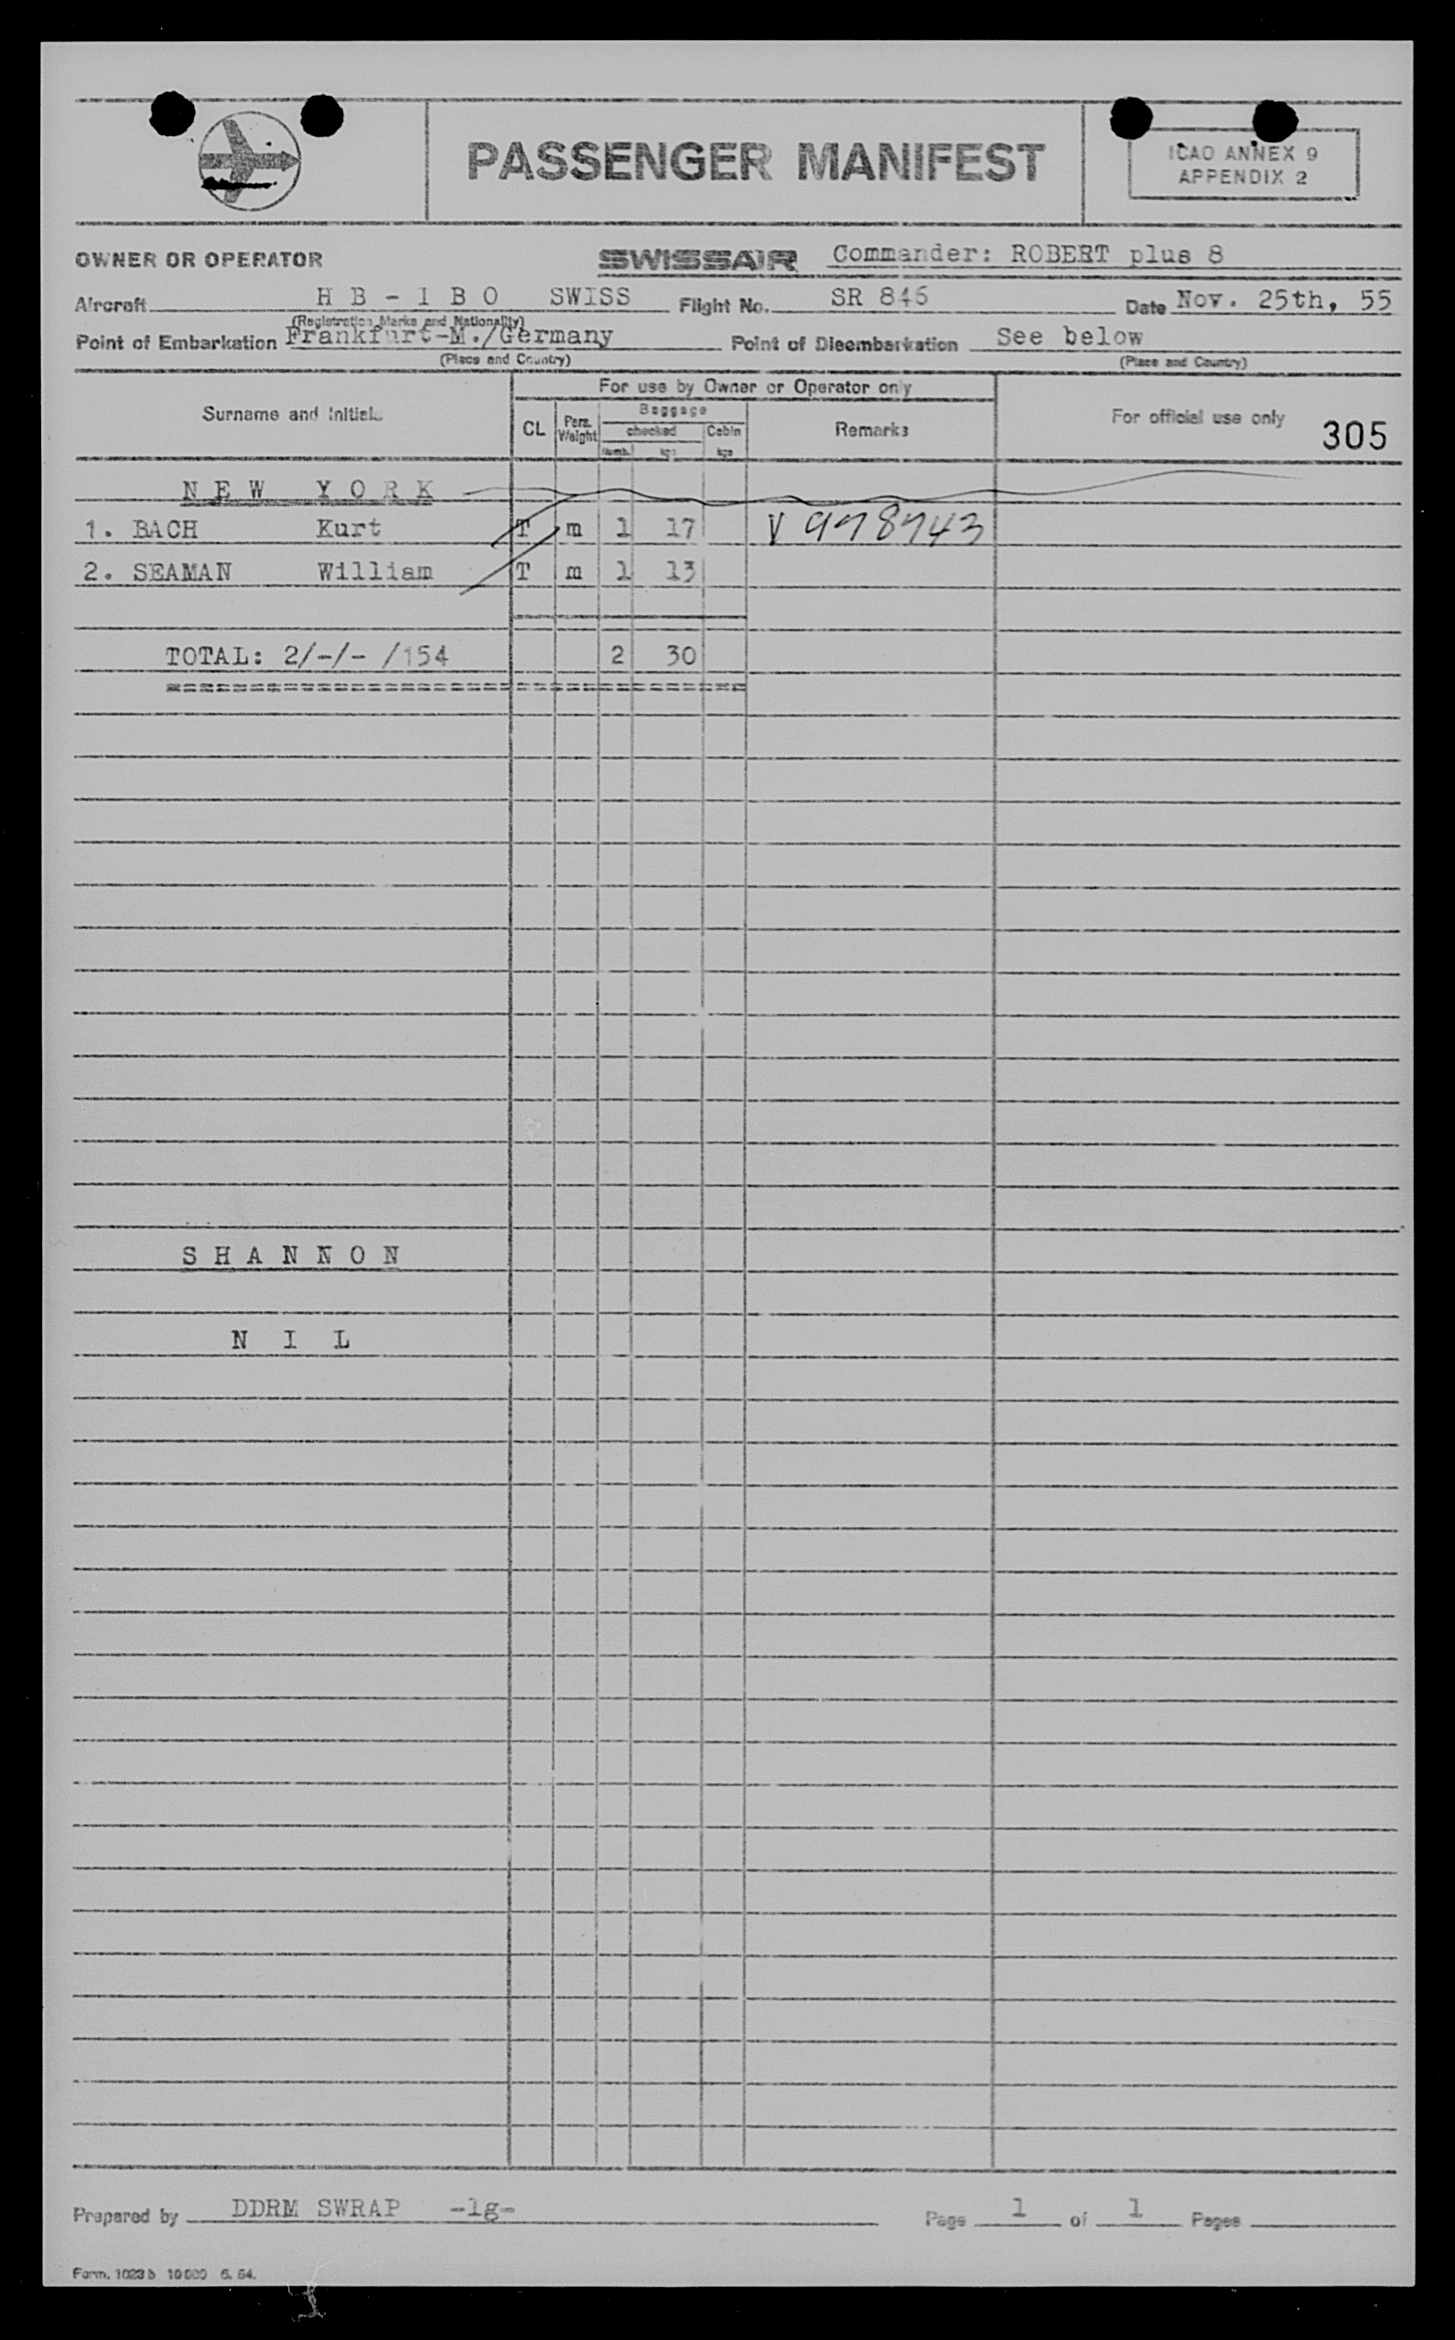 PASSENGER MANIFEST
ICAO ANNEX 9
APPENDIX 2
OWNER OR OPERATOR SWISSAIR Commander: ROBERT plus 8
Aircraft H B - I B O SWISS Flight No. SR 846 Date Nov. 25th, 55
(Registration Marks and Nationality)
Point of Embarkation Frankfurt-M./Germany Point of Disembarkation See below
(Place and Country) (Place and Country)
For use by Owner or Operator only
Surname and Initials CL Pers. Weight Baggage checked Cabin Remarks For official use only 305
Numb. kgs kgs
N E W Y O R K
1. BACH Kurt T m 1 17 V 978743
2. SEAMAN William T m 1 13
TOTAL: 2/-/- /154 2 30
S H A N N O N
N I L
Prepared by DDRM SWRAP -lg- Page 1 of 1 Pages
Form. 1023 b 10000 6. 54.